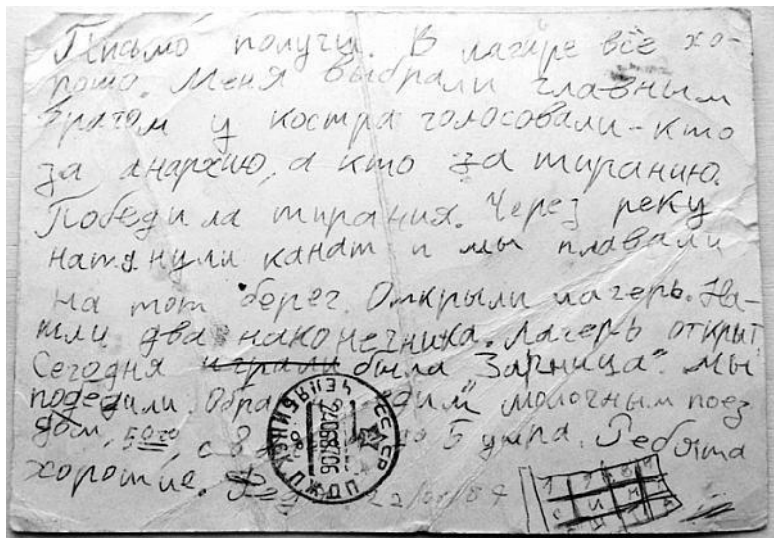 Письмо получил. В лагере всё хо-
рошо. Меня выбрали главным
врагом у костра голосовали - кто
за анархию, а кто за тиранию.
Победила тирания. Через реку
натянули канат и мы плавали
на тот берег. Открыли лагерь. На-
шли два наконечника. Лагерь открыт.
Сегодня играли была "Зарница". Мы
победили. молочным поез
дом, с 8 до 5 утра. Ребята
хорошие.
СССР
ЧЕЛЯБИНСК